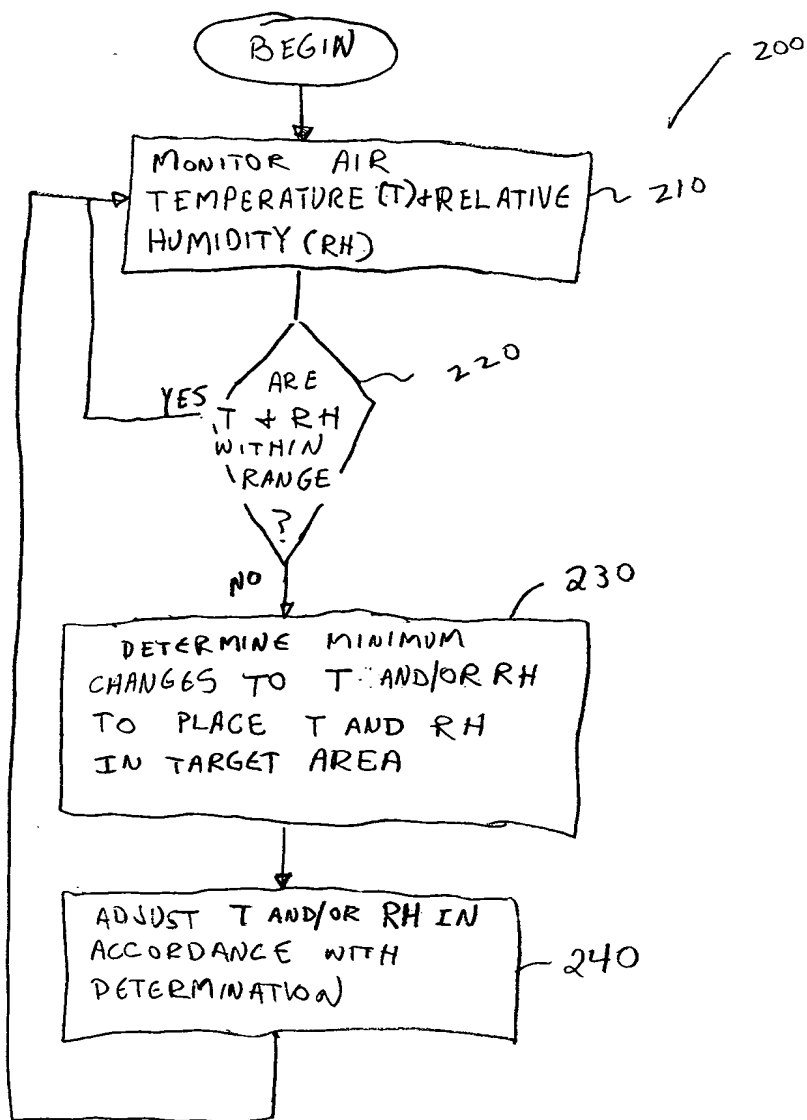 BEGIN
200
MONITOR AIR
TEMPERATURE (T) + RELATIVE
HUMIDITY (RH)
210
ARE
T + RH
WITHIN
RANGE
?
220
YES
NO
230
DETERMINE MINIMUM
CHANGES TO T AND/OR RH
TO PLACE T AND RH
IN TARGET AREA
ADJUST T AND/OR RH IN
ACCORDANCE WITH
DETERMINATION
240